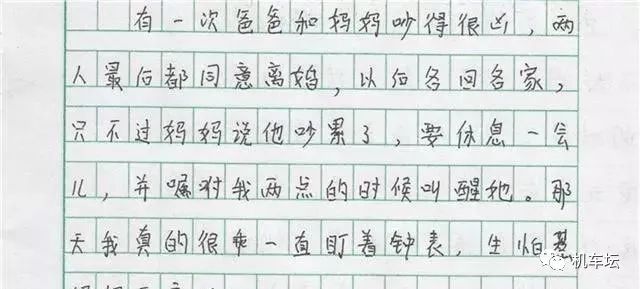 有一次爸爸和妈妈吵得很凶，两
人最后都同意离婚，以后各回各家，
只不过妈妈说他吵累了，要休息一会
儿，并嘱咐我两点的时候叫醒她。那
天我真的很乖一直盯着钟表，生怕
机车坛